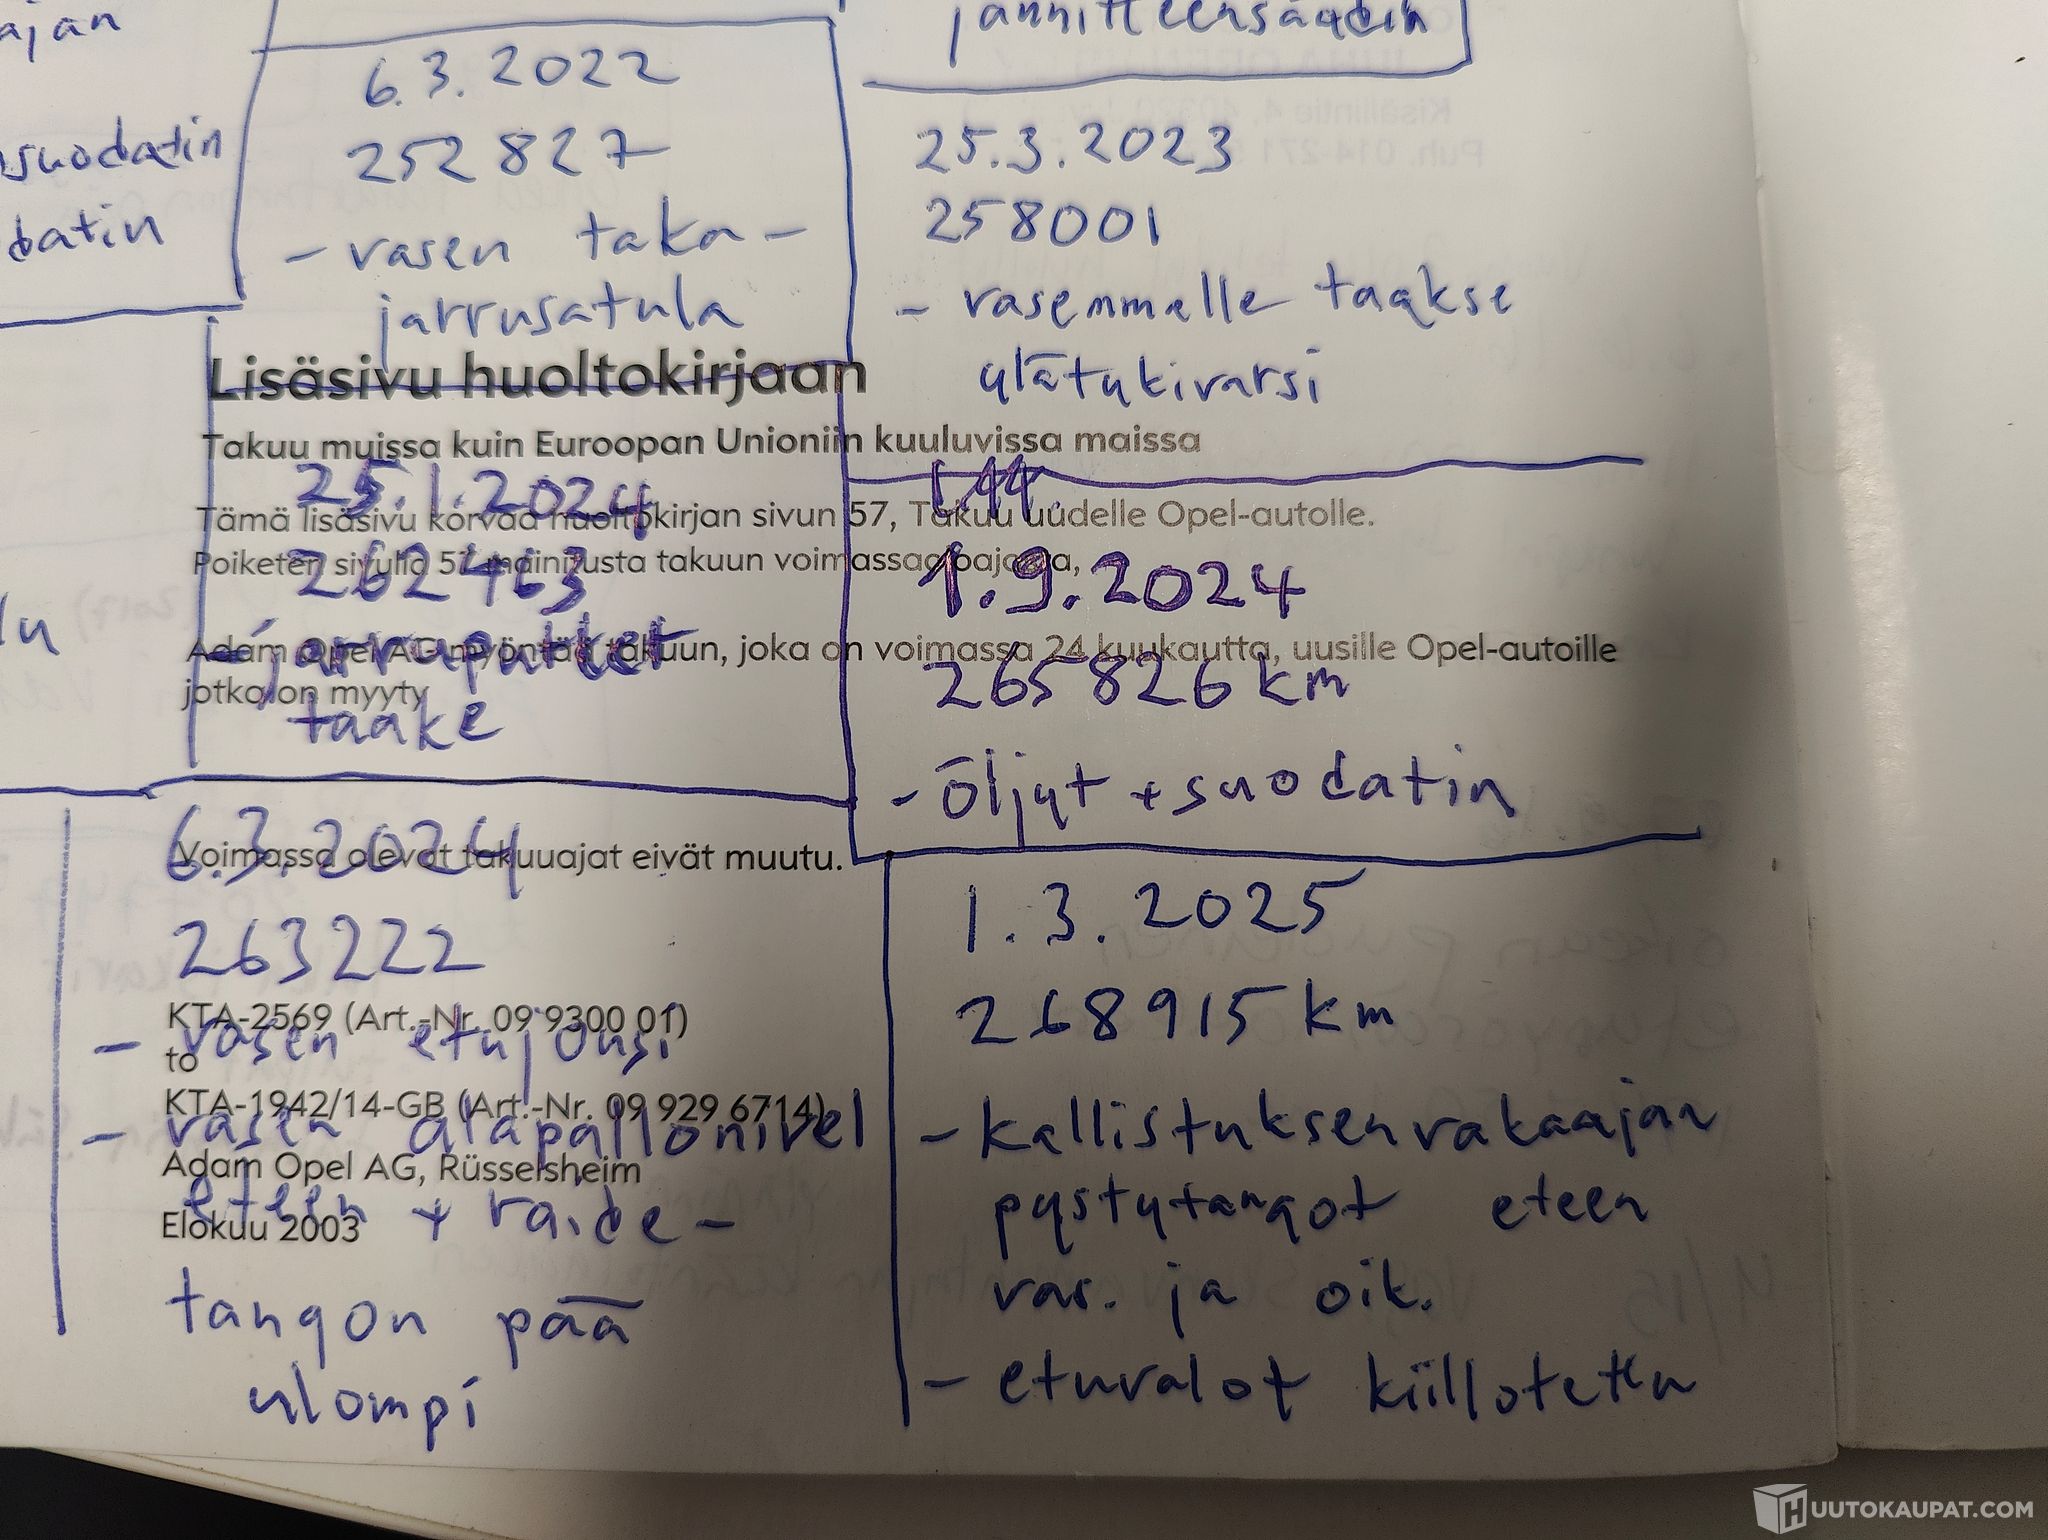 ajan
suodatin
datin
jännitteensäädin
6.3.2022
252827
- vasen taka-
jarrusatula
25.3.2023
258001
- vasemmalle taakse
ylätukivarsi
Lisäsivu huoltokirjaan
Takuu muissa kuin Euroopan Unioniin kuuluvissa maissa
Tämä lisäsivu korvaa huoltokirjan sivun 57, Takuu uudelle Opel-autolle.
Poiketen sivulla 57 mainitusta takuun voimassaoloajasta,
Adam Opel AG myöntää takuun, joka on voimassa 24 kuukautta, uusille Opel-autoille
jotka on myyty
Voimassa olevat takuuajat eivät muutu.
KTA-2569 (Art.-Nr. 09 9300 01)
to
KTA-1942/14-GB (Art.-Nr. 09 929 6714)
Adam Opel AG, Rüsselsheim
Elokuu 2003
25.1.2024
262463
- jarruputket
taake
1.9.2024
265826 km
- öljyt + suodatin
6.3.2024
263222
- vasen etujousi
- vasen alapallonivel
eteen + raide-
tangon pää
ulompi
1.3.2025
268915 km
- kallistuksenvakaajan
pystytangot eteen
vas. ja oik.
- etuvalot kiillotettu
HUUTOKAUPAT.COM